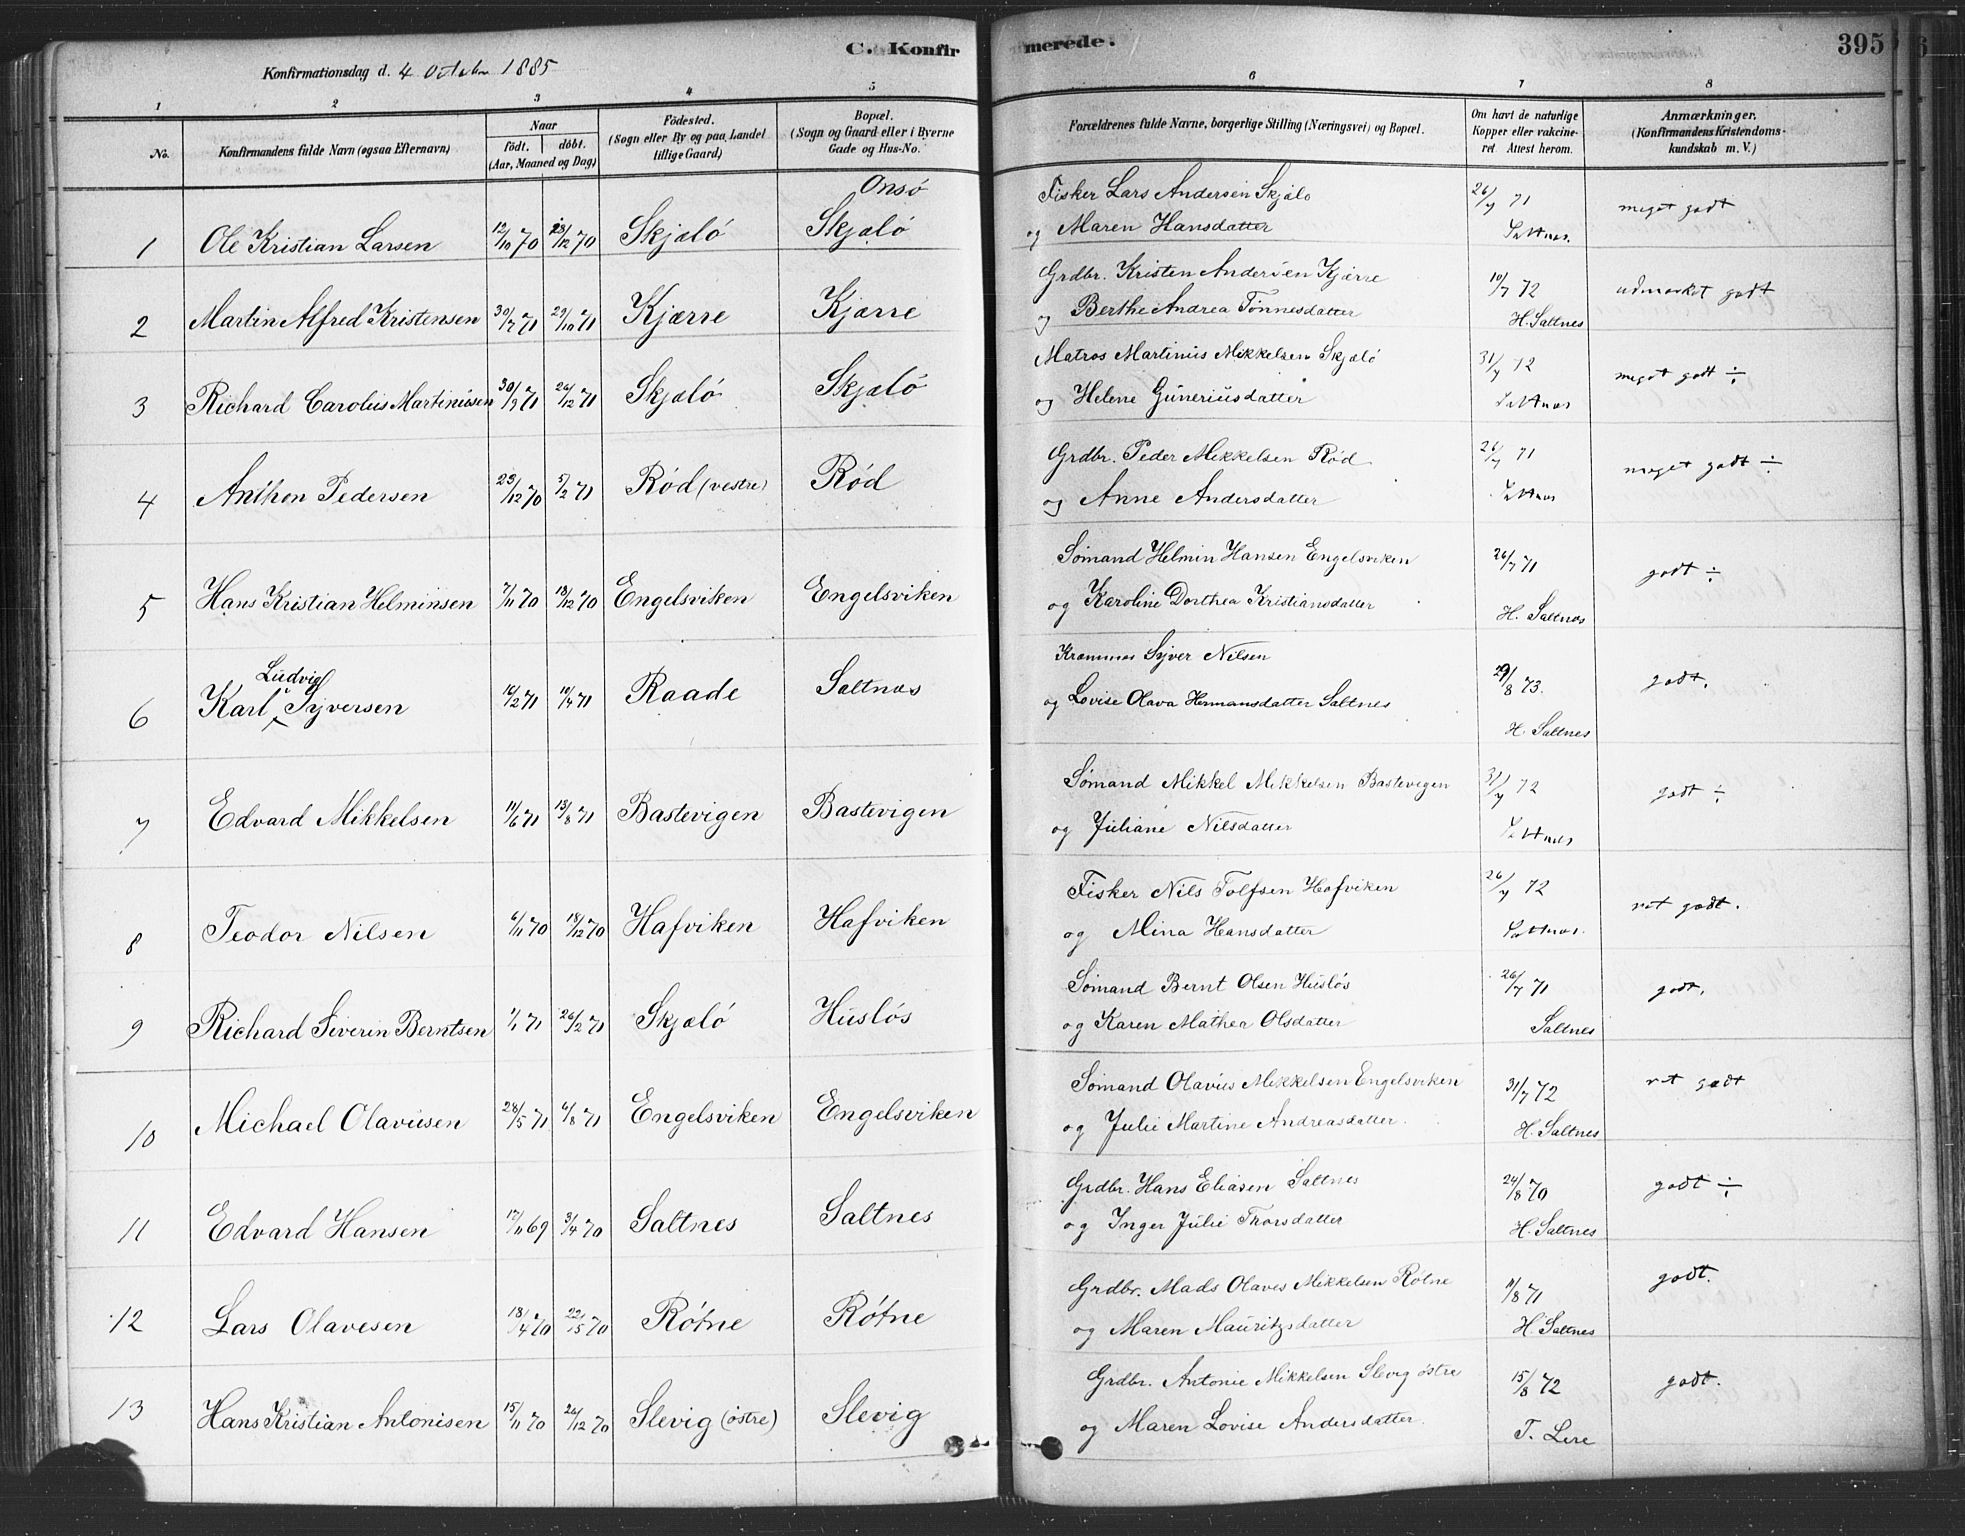 C. Konfirmerede. 395
Konfirmationsdag d. 4 Octobr 1885
1 2 3 4 5 6 7 8
No. Konfirmandens fulde Navn (ogsaa Efternavn) Naar födt. döbt. (Aar, Maaned og Dag) Födested. (Sogn eller By og paa Landet tillige Gaard) Bopæl. (Sogn og Gaard eller i Byerne Gade og Hus-No. Forældrenes fulde Navne, borgerlige Stilling (Næringsvei) og Bopæl. Om havt de naturlige Kopper eller vakcineret. Attest herom. Anmærkninger. (Konfirmandens Kristendomskundskab m. V.)
Onsö
1 Ole Kristian Larsen 12/10 70 23/12 70 Skjælö Skjælö Fisker Lars Andersen Skjælö 26/7 71 meget godt
og Maren Hansdatter Saltnæs.
2 Martin Alfred Kristensen 30/7 71 29/10 71 Kjærre Kjærre Grdbr. Kristen Andersen Kjærre 10/7 72 udmærket godt
og Berthe Andrea Tönnesdatter H. Saltnes
3 Richard Carolius Martiniusen 30/9 71 26/12 71 Skjælö Skjælö Matros Martinius Mikkelsen Skjælö 31/7 72 meget godt ÷
og Helene Guneriusdatter Saltnæs
4 Anthon Pedersen 23/12 70 5/2 71 Röd (vestre) Röd Grdbr. Peder Mikkelsen Röd 26/7 71 meget godt ÷
og Anne Andersdatter Saltnæs
5 Hans Kristian Helminsen 7/11 70 18/12 70 Engelsviken Engelsviken Sömand Helmin Hansen Engelsviken 26/7 71 godt ÷
og Karoline Dorthea Kristiansdatter H. Saltnæs
6 Karl Ludvig Syversen 16/2 71 10/4 71 Raade Saltnæs Syver Nilsen 29/8 73. godt.
og Lovise Olava Hermansdatter Saltnes H. Saltnes
7 Edvard Mikkelsen 11/6 71 13/8 71 Bastevigen Bastevigen Sömand Mikkel Mikkelsen Bastevigen 31/7 72 godt ÷
og Juliane Nilsdatter Saltnæs
8 Teodor Nilsen 6/11 70 18/12 70 Hafviken Hafviken Fisker Nils Tolfsen Hafviken 26/7 72 ret godt.
og Mina Hansdatter Saltnæs.
9 Richard Siverin Berntsen 1/1 71 26/2 71 Skjælö Huslös Sömand Bernt Olsen Huslös 26/7 71 godt.
og Karen Mathea Olsdatter Saltnes
10 Michael Olavusen 28/5 71 6/8 71 Engelsviken Engelsviken Sömand Olavus Mikkelsen Engelsviken 31/7 72 ret godt
og Julie Martine Andreasdatter. H. Saltnes
11 Edvard Hansen 17/11 69 3/4 70 Saltnes Saltnes Grdbr. Hans Eliasen Saltnes 24/8 70 godt ÷
og Inger Julie Thorsdatter H. Saltnes
12 Lars Olavesen 18/4 70 22/5 70 Rötne Rötne Grdbr. Mads Olaves Mikkelsen Rötne 11/8 71 godt.
og Maren Mauritzsdatter H. Saltnes
13 Hans Kristian Antonisen 15/11 70 26/12 70 Slevig (östre) Slevig Grdbr. Antonie Mikkelsen Slevig östre 15/8 72 godt.
og Maren Lovise Andersdatter. T. Lere